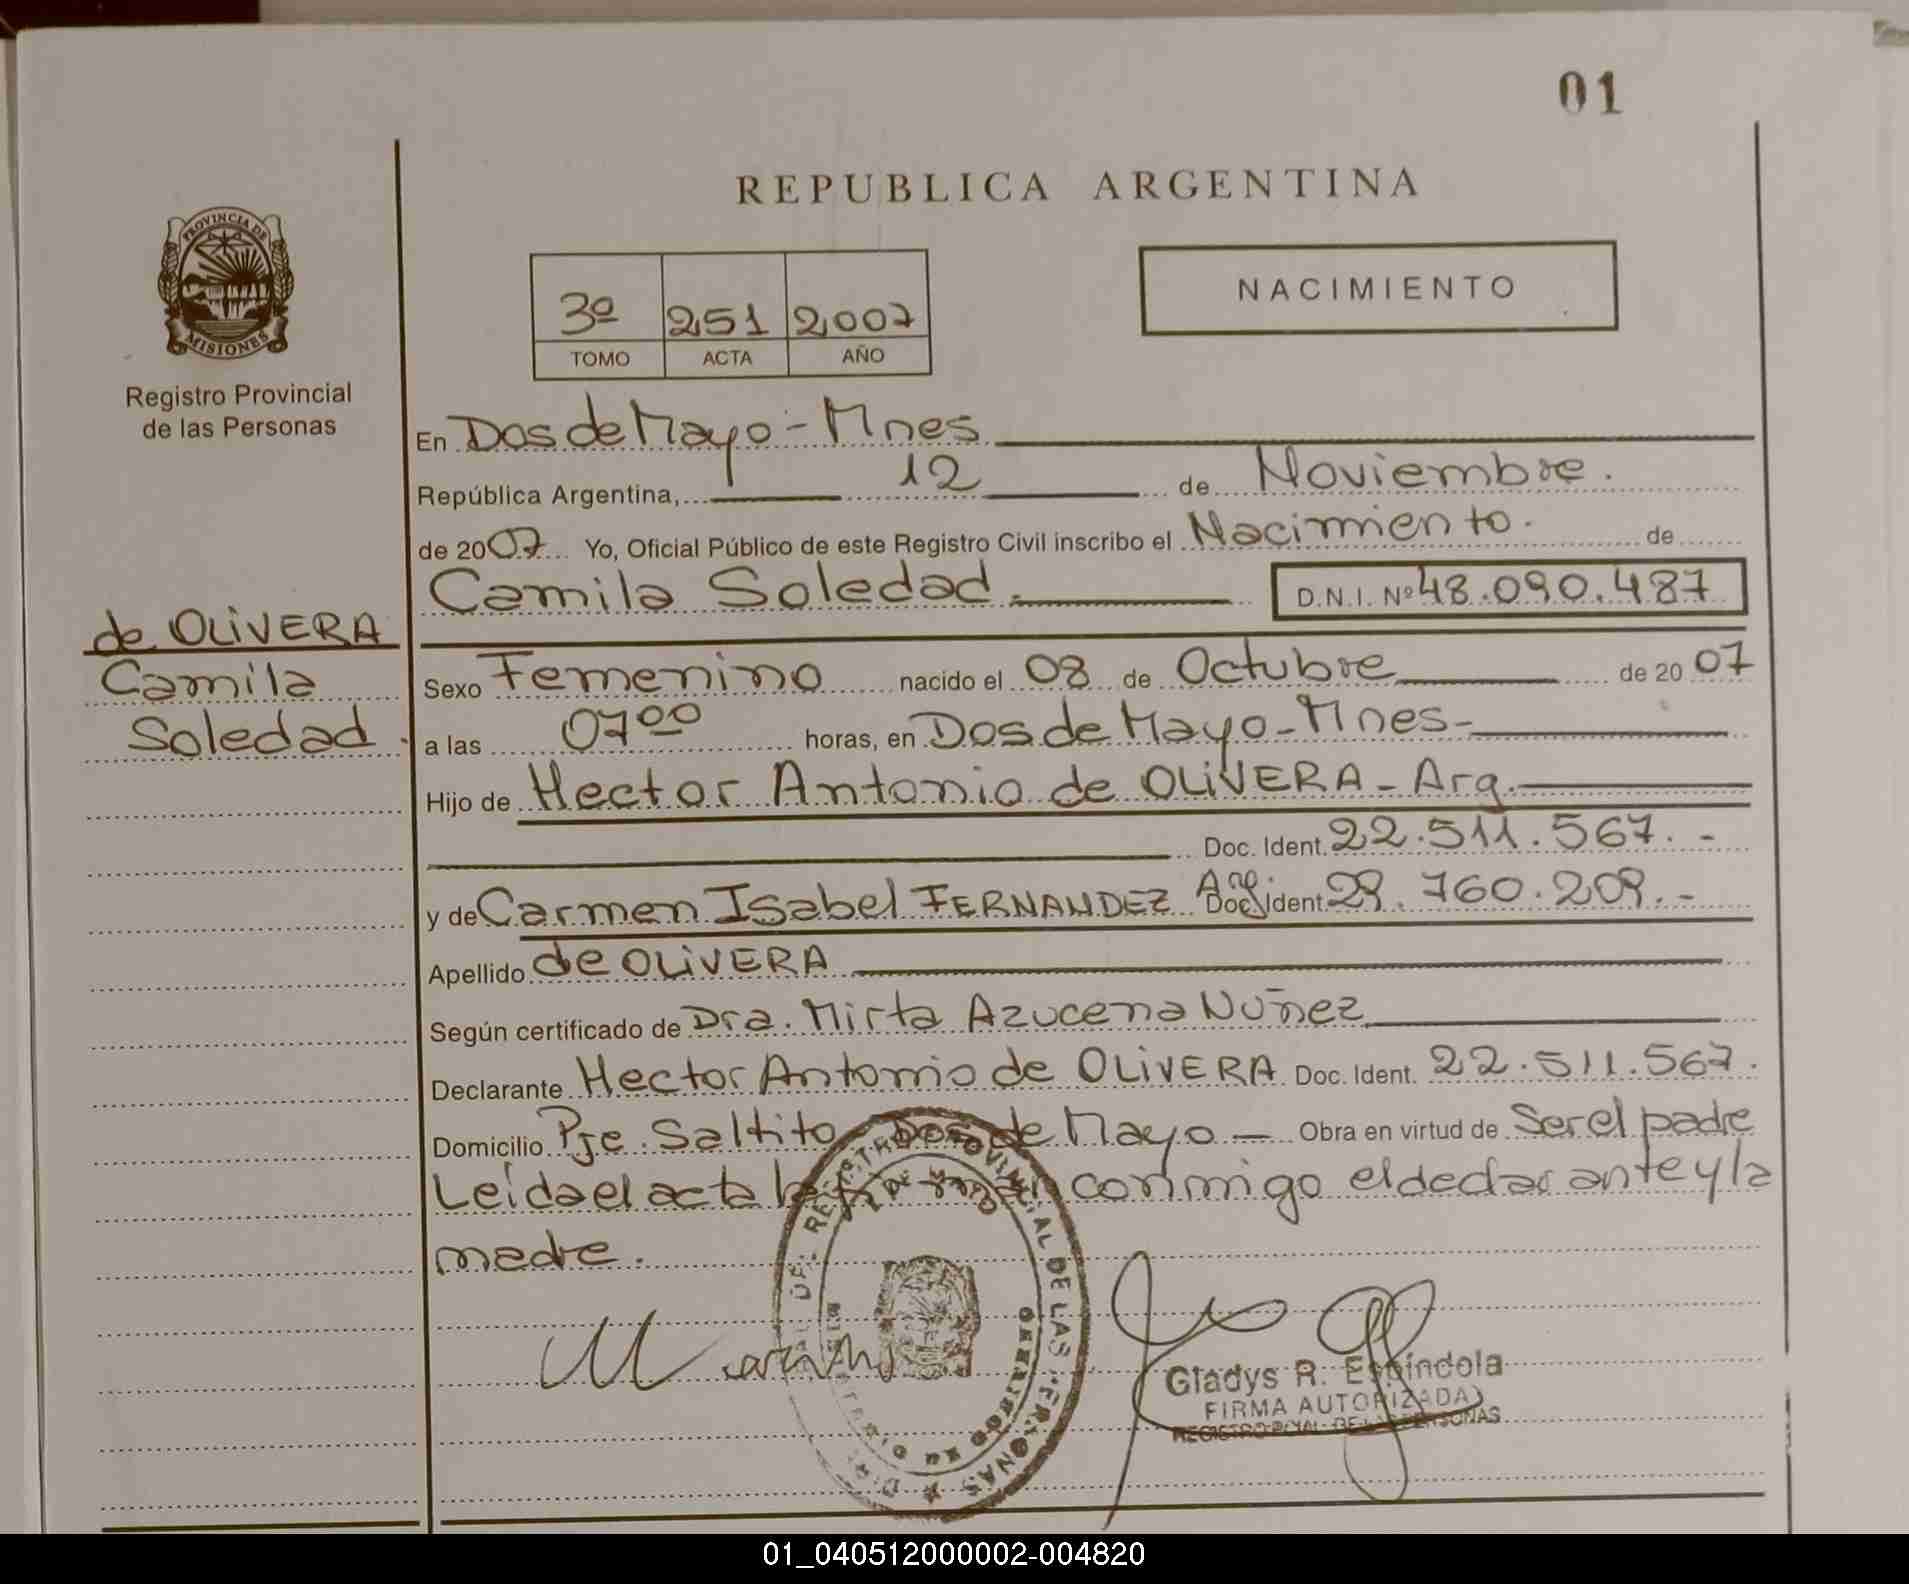 01
REPUBLICA ARGENTINA
PROVINCIA DE
MISIONES
Registro Provincial
de las Personas
3º 251 2,007
TOMO ACTA AÑO
NACIMIENTO
En Dos de Mayo - Mnes
República Argentina, 12 de Noviembre.
de 2007 Yo, Oficial Público de este Registro Civil inscribo el Nacimiento. de
Camila Soledad. D.N.I. Nº 48.090.487
de OLIVERA
Camila
Soledad.
Sexo Femenino nacido el 08 de Octubre de 2007
a las 07⁰⁰ horas, en Dos de Mayo - Mnes -
Hijo de Hector Antonio de OLIVERA - Arg.
Doc. Ident. 22.511.567. -
y de Carmen Isabel FERNANDEZ Arg Doc. Ident. 29.760.209. -
Apellido de OLIVERA
Según certificado de Dra. Mirta Azucena Nuñez
Declarante Hector Antonio de OLIVERA Doc. Ident. 22.511.567.
Domicilio Pje. Saltito - Dos de Mayo - Obra en virtud de Ser el padre
Leída el acta la firman conmigo el declarante y la
madre.
REGISTRO PROVINCIAL DE LAS PERSONAS
Gladys R. Espíndola
FIRMA AUTORIZADA
REGISTRO PCIAL. DE LAS PERSONAS
01_040512000002-004820